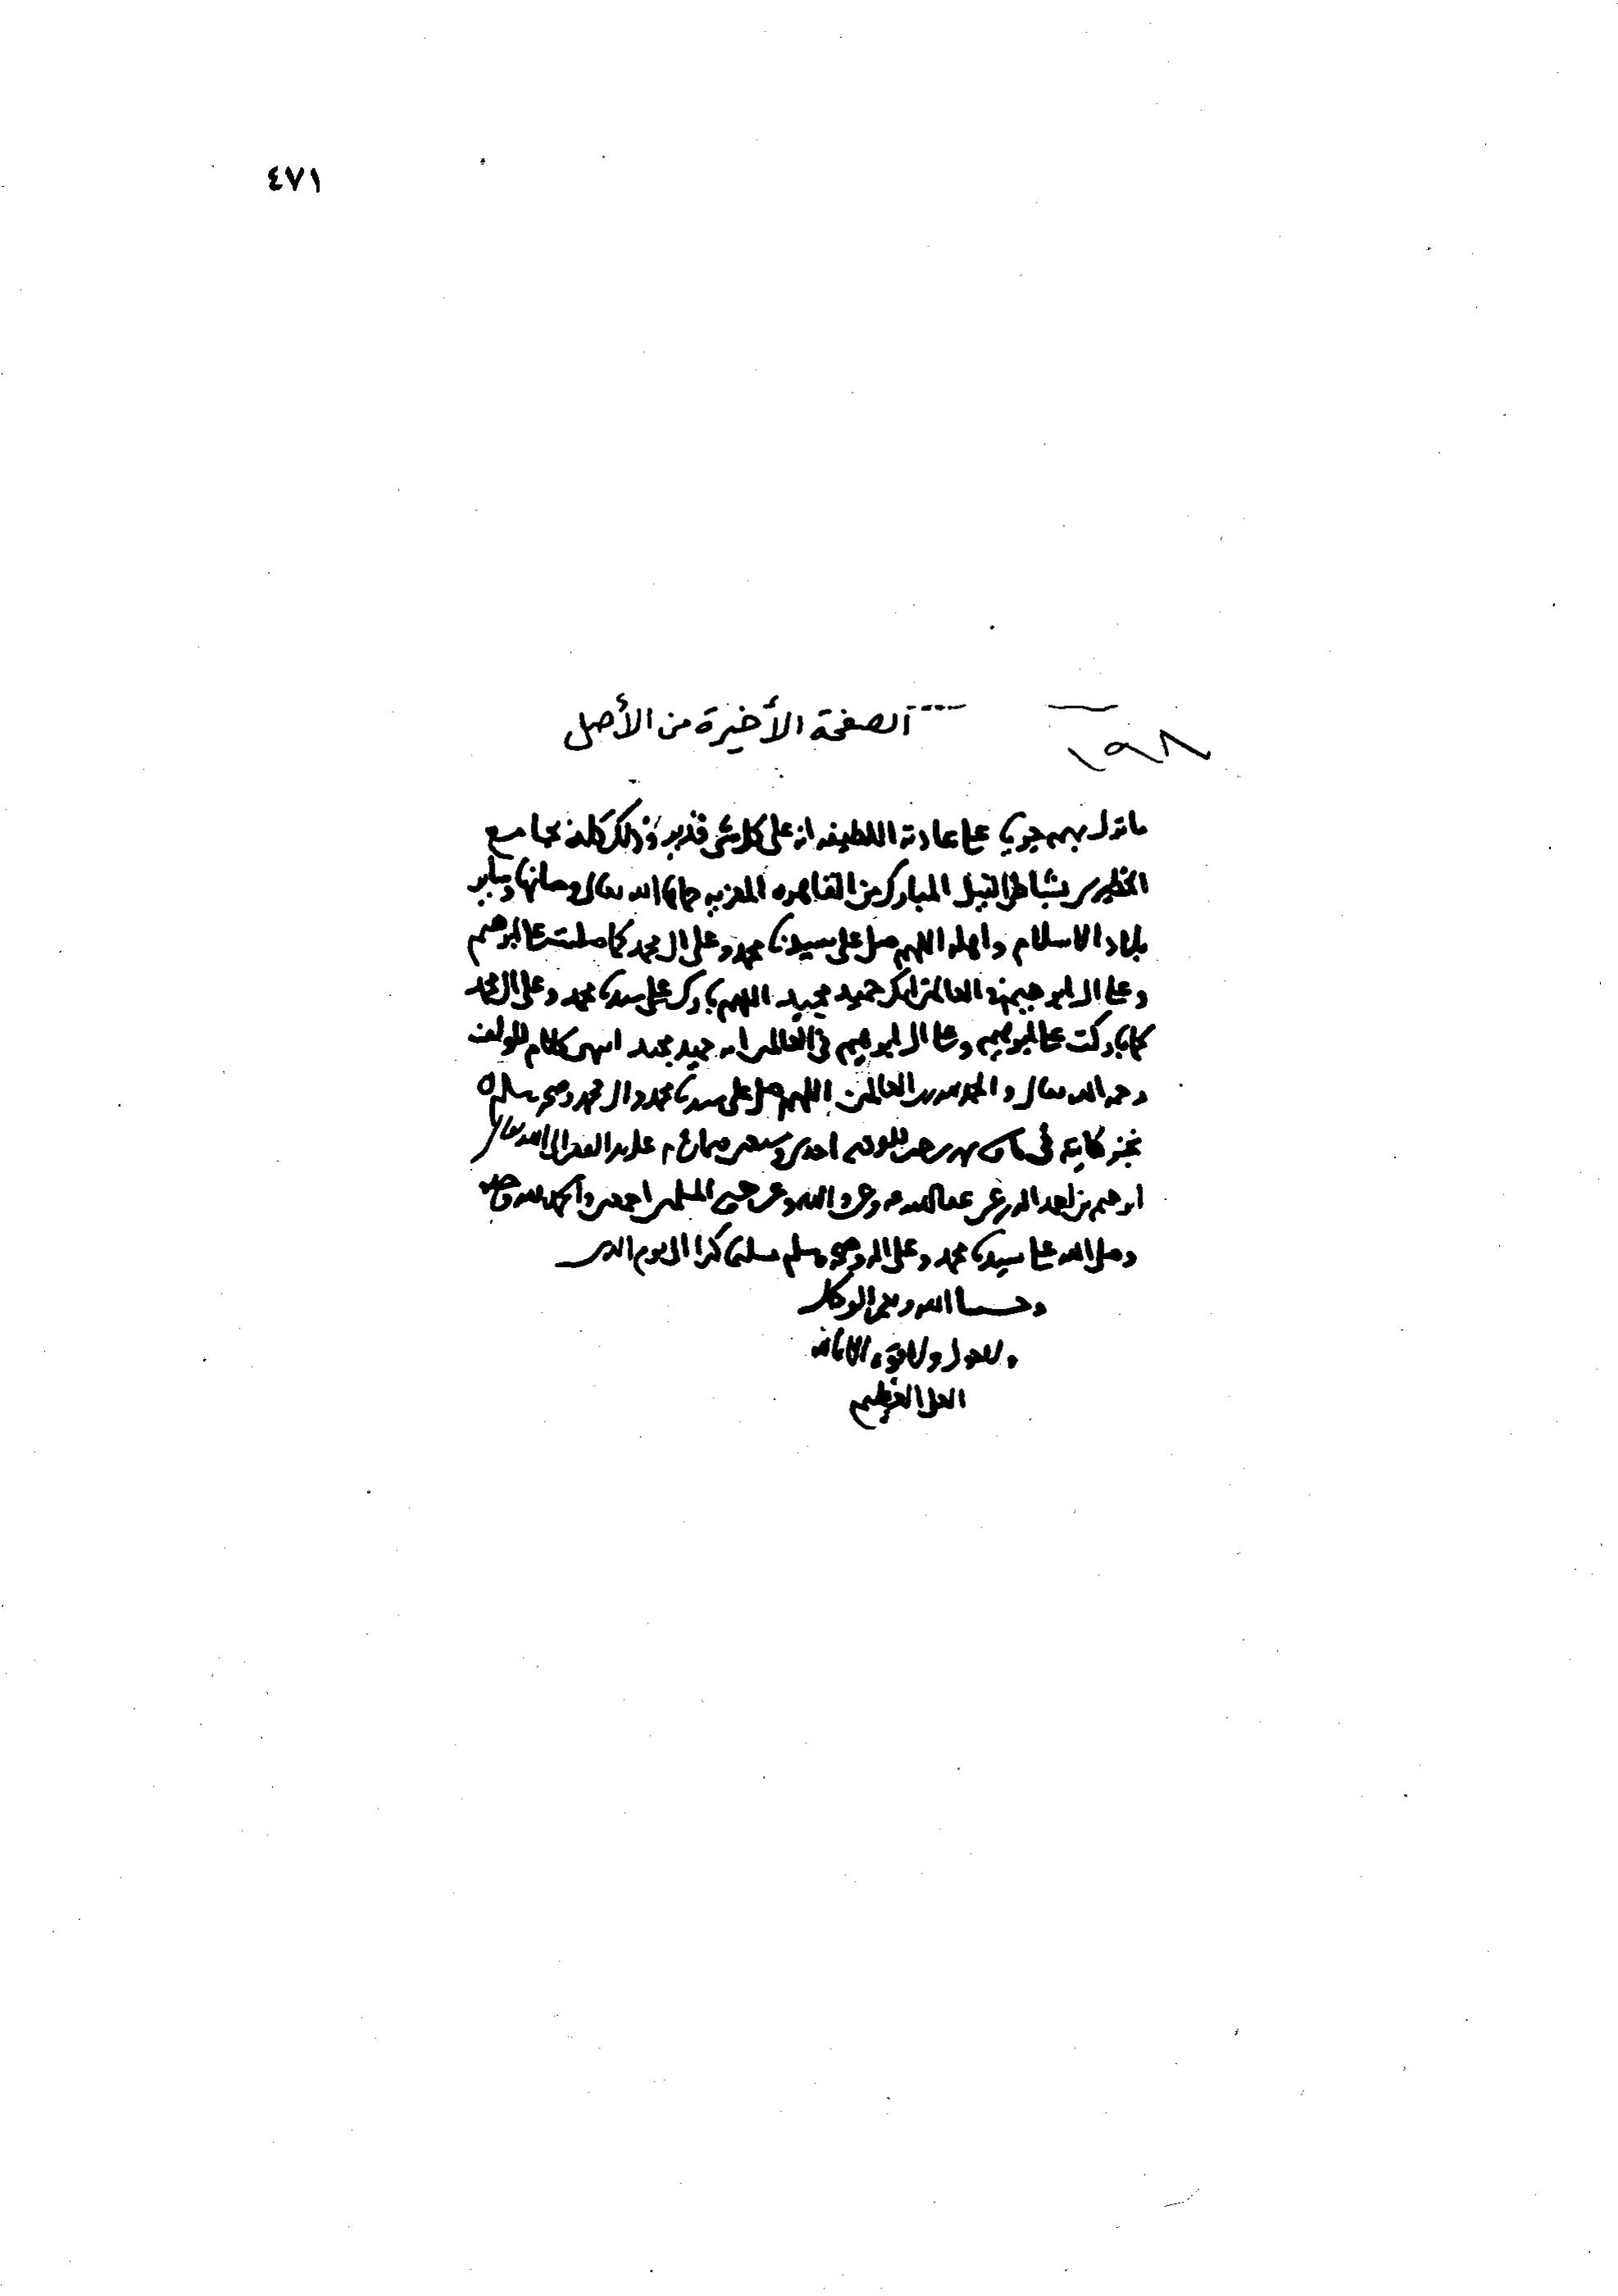 ٤٧١
الصفحة الأخيرة من الأصل
١٩٨
ما نزل بهم جريا على عادته اللطيفه انه على كل شي قدير وذلك كله بجامع
الخطيري بشاطى النيل المبارك من القاهره المعزيه حماها الله تعالى وصانها وساير
بلاد الاسلام واهله اللهم صل على سيدنا محمد وعلى ال محمد كما صليت على ابرهيم
وعلى ال ابرهيم في العالمين انك حميد مجيد اللهم بارك على سيدنا محمد وعلى ال محمد
كما باركت على ابرهيم وعلى ال ابرهيم في العالمين انك حميد مجيد انتهى كلام المولف
رحمه الله تعالى والحمد لله رب العالمين اللهم صل على سيدنا محمد وال محمد وصحبه وسلم
نجز كتابه في احدى وسبعين وثمان مايه على يد الفقير الى الله تعالى
ابرهيم بن احمد عفا الله عنه وعن والديه وعن جميع المسلمين اجمعين والحمد لله وحده
وصلى الله على سيدنا محمد وعلى اله وصحبه وسلم تسليما كثيرا الى يوم الدين
وحسبنا الله ونعم الوكيل
ولا حول ولا قوة الا بالله
العلي العظيم